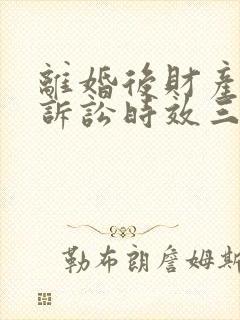 離婚後財產
訴訟時效三
勒布朗詹姆斯